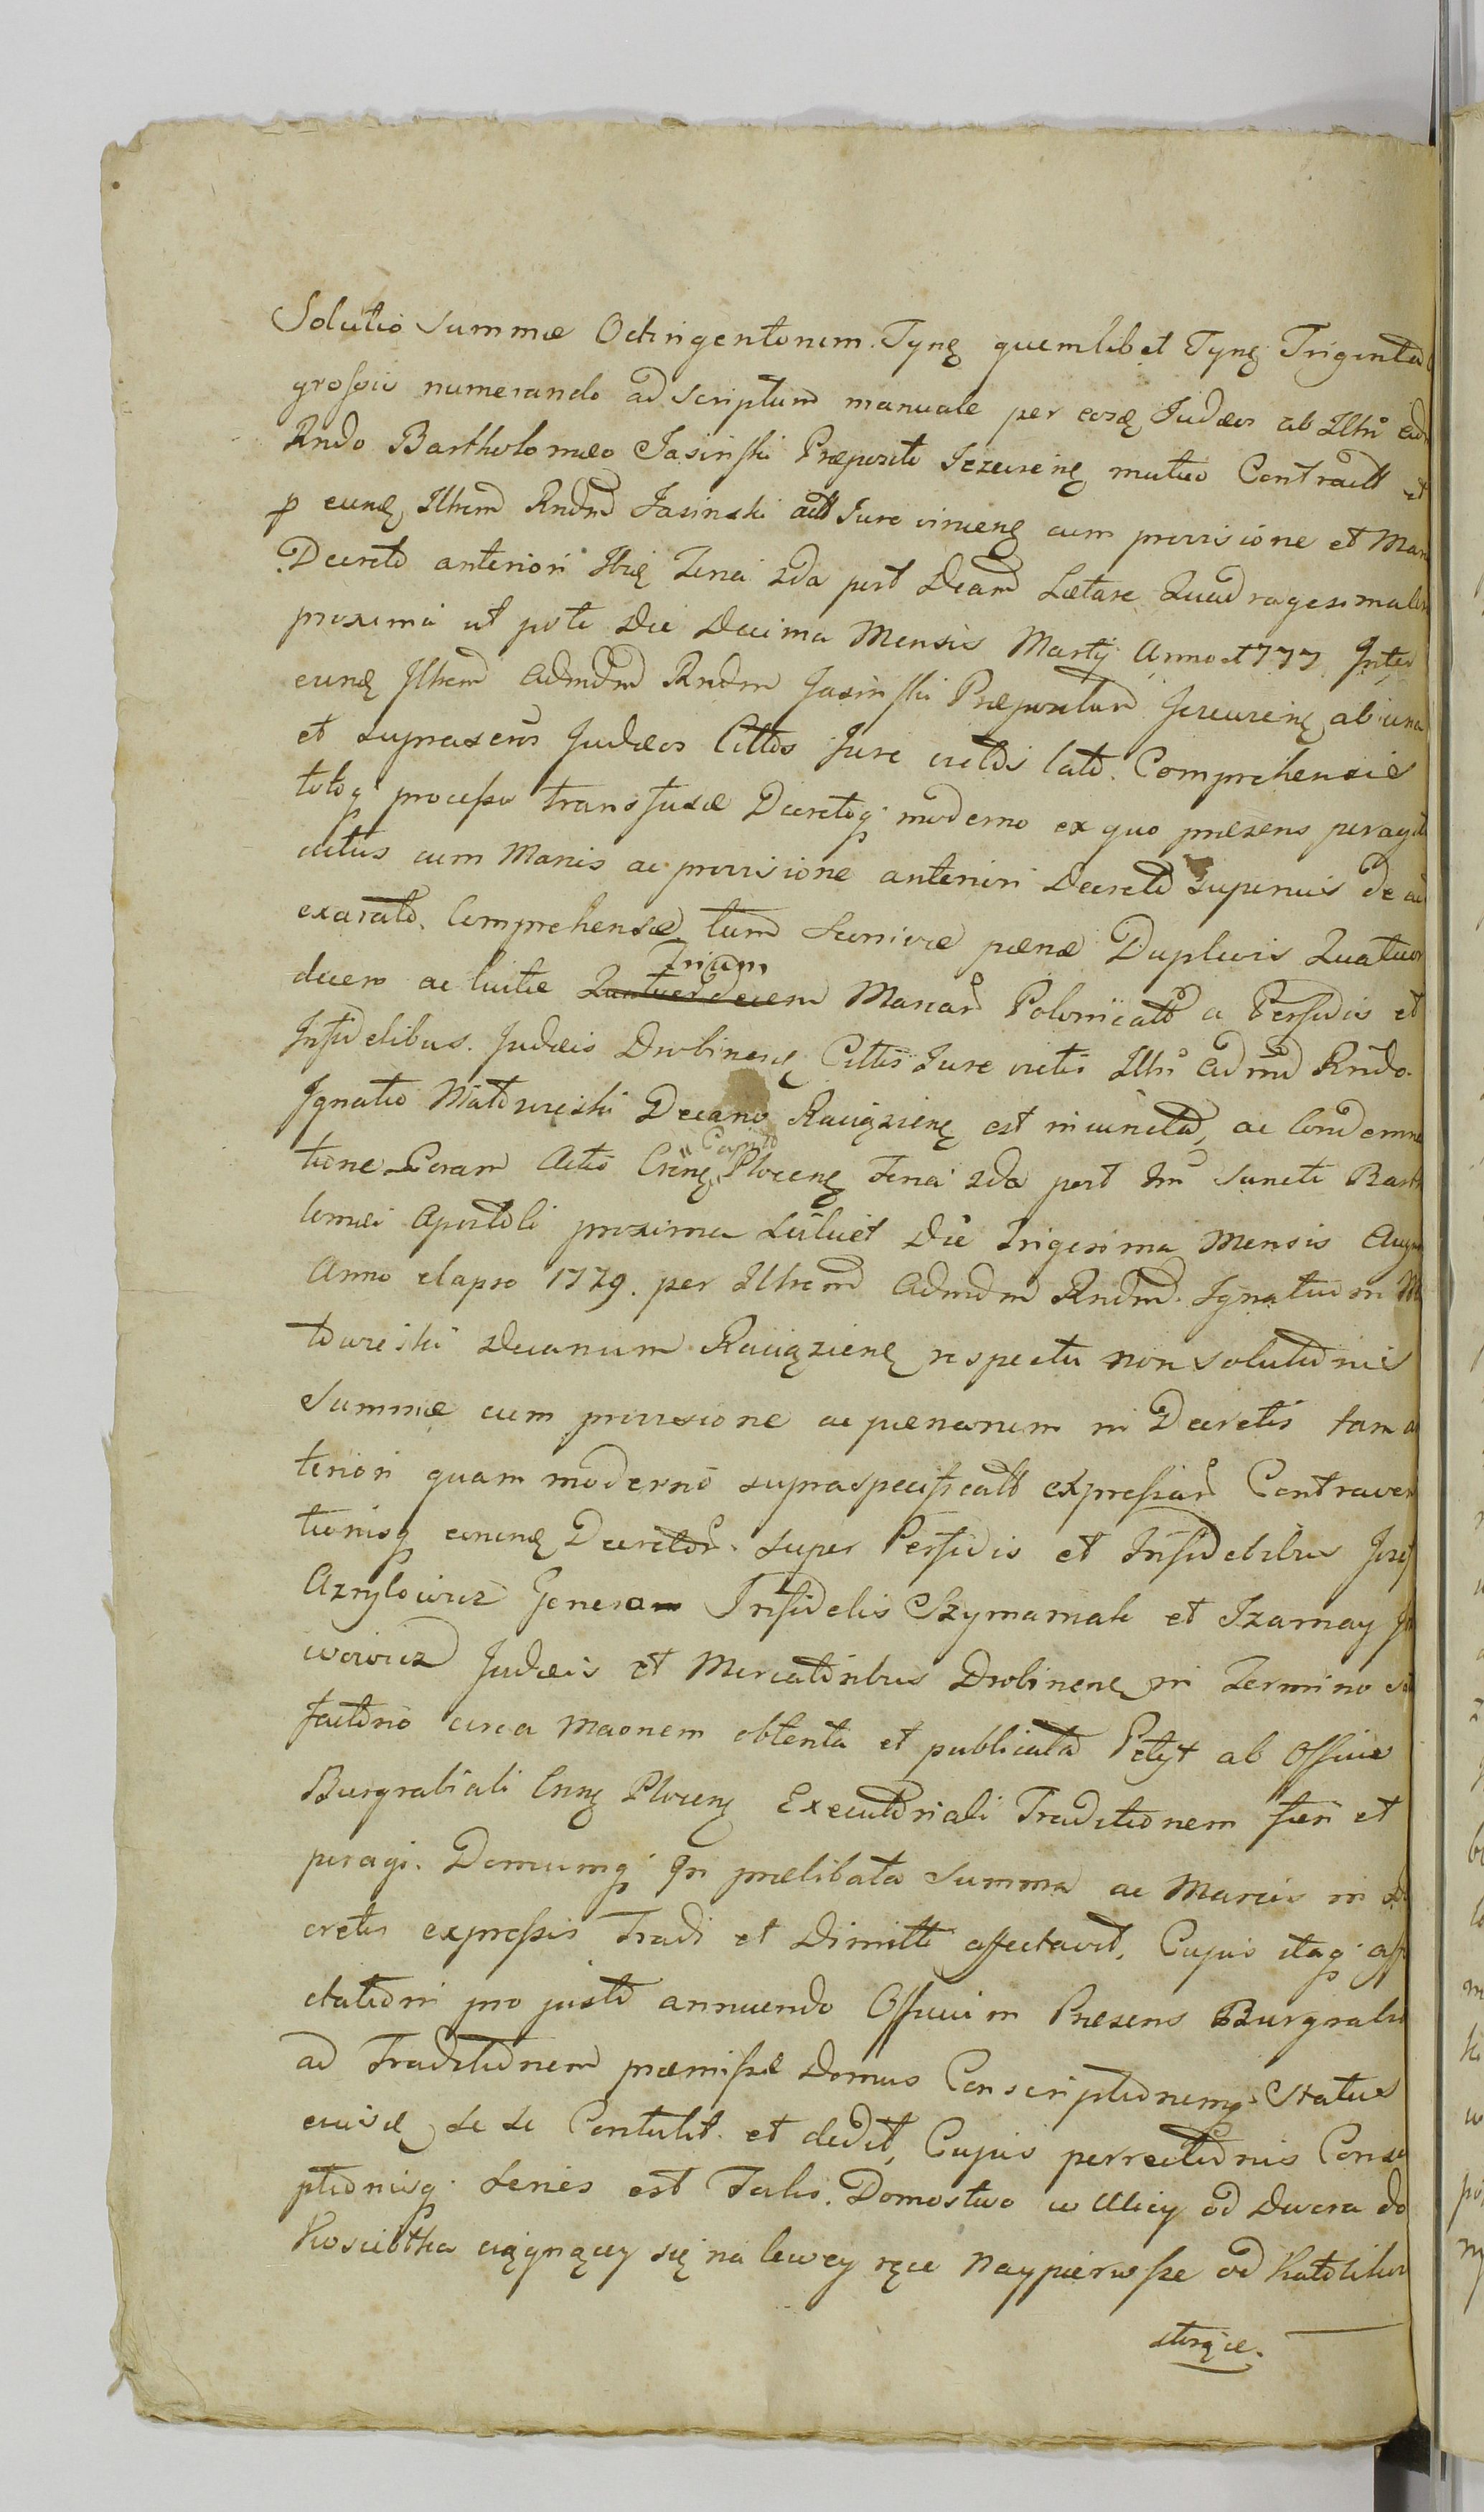 Solutio Summæ Octingentorum. Tynꝫ quemlibet Tynꝫ Triginta
groſsis numerando ad Scriptum manuale per eosꝫ Judæos ab Illri adm
Rndo Bartholomæo Jasinſki Præposito Jezewienꝫ mutuo Contractt et
p eunꝫ Illrem Rndm Jasinski actt Jure vincenꝫ cum provisione et Marc
Decreto anteriori Feriæ 2da post Dcam Lætare Quadragesimalem
proxima ut pote Die Decima Mensis Martij Anno 1777 Inter
eunꝫ Illrem Admdm Rndm Jasinſki Præpositum Jezewienꝫ ab una
et suprascros Judæos Cittos Jure victos lato. Comprehensis
totoq; proceſsu transfusæ Decretoq; moderno ex quo præsens peragit
actus cum Marcis ac provisione anteriori Decreto superius de act
exarato. Comprehensæ tum Seorsivæ pænæ Duplicis Quatuor
decem ac luitæ Quatuordecem Trium Marcar Polonicalt a Perfidis et
Infidelibus. Judæis Drobinenꝫ Cittis Jure victis Illri Admd Rndo.
Ignatio Mdtureski Decano Raciązienꝫ est iniuncta, ac Condemna
tione Coram Actis Crenꝫ Capito Plocenꝫ Feria 2da post Fm Sancti Barth
lomæi Apostoli proxima Scilicet Die Trigesima Mensis Augus
Anno elapso 1779. per Illrem Admdm Rndm. Ignatium M
tureski Decanum Raciązienꝫ respectu non solutionis
Summæ cum provisione ac pænarum in Decretis tam an
teriori quam moderno supraspecificatt expreſsar Contraven
tionisq eorunꝫ Decretor. super Perfidis et Infidelibus Jozef
Generam Infidelis Szymaniak et
Judæis et Mercatoribus Drobinenꝫ in Termino
factorio circa Maonem obtenta et publicata Petyt ab Officio
Burgrabiali Crenꝫ Plocenꝫ Executoriali Traditionem fieri et
peragi. Domumq; In prælibata Summa ac Marcis in De
cretis expreſsis Tradi et Dimitti affectavit, Cujus itaq; affe
ctationi pro justo annuendo Officium Præsens Burgrabi
ad Traditionem præmiſsæ Domus Conscriptionemq Status
eiusꝫ se se Contulit. et dedit, Cujus perrectionis Conscri
ptionisq; Series est Talis. Domostwo w Ulicy od Dwora do
Kosciołka ciągnącey się na lewey ręce Naypierwſze od Katolikow
stojące.